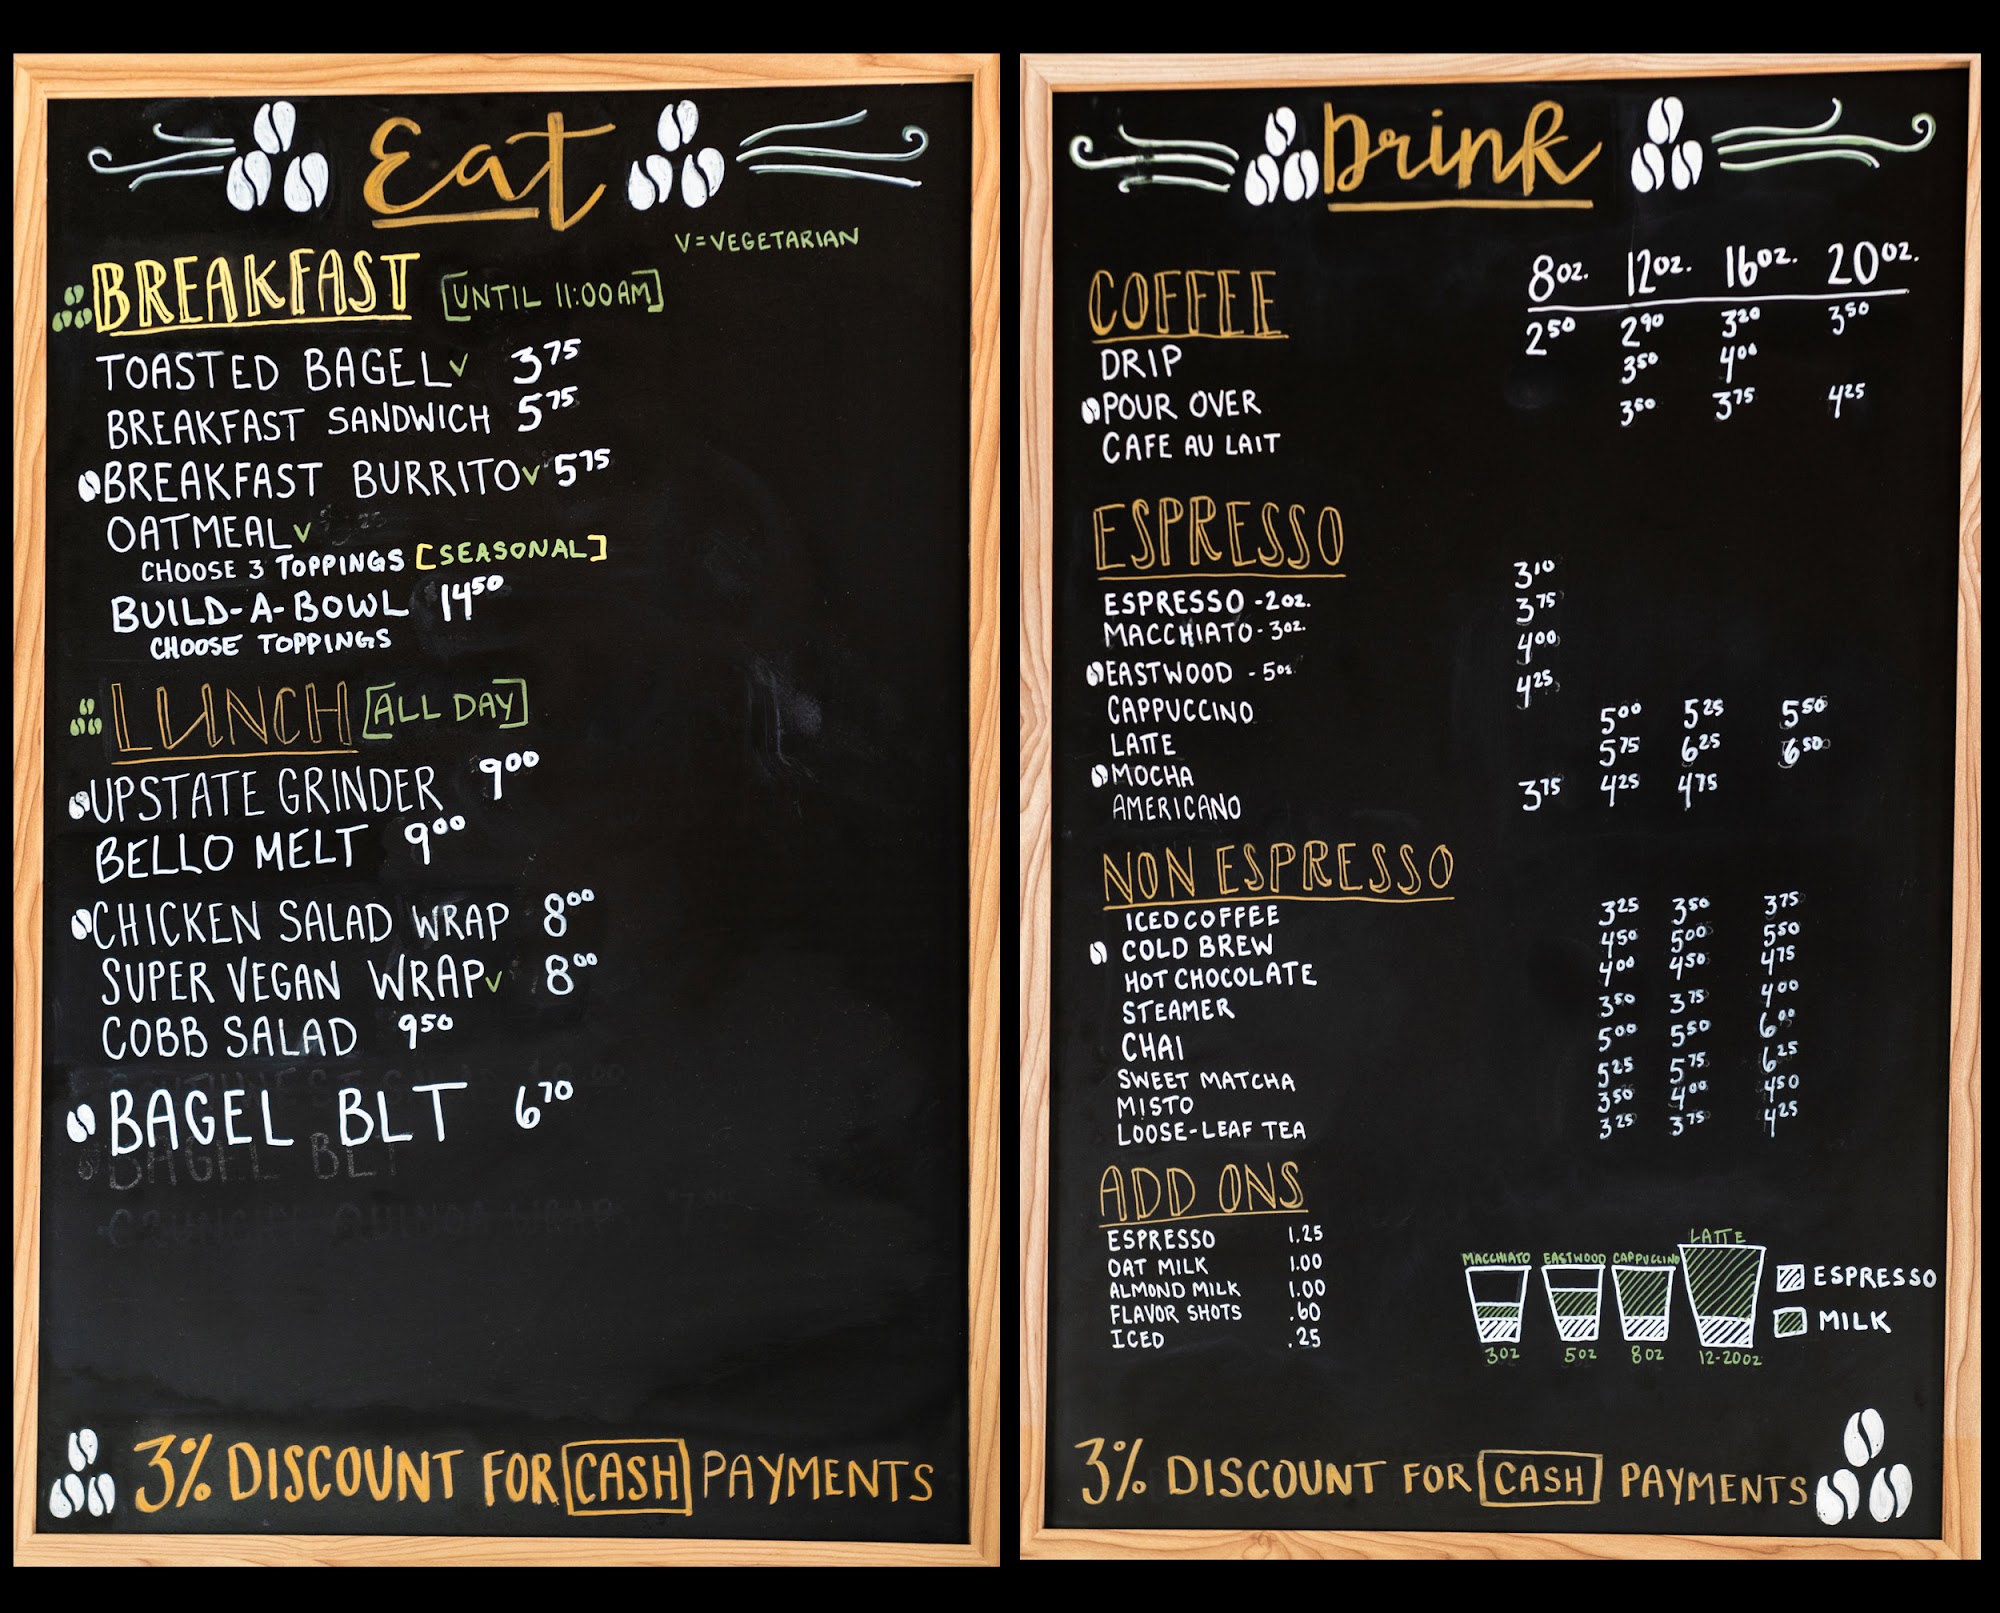 Eat
V=VEGETARIAN
BREAKFAST [UNTIL 11:00AM]
TOASTED BAGEL V 3 75
BREAKFAST SANDWICH 5 75
BREAKFAST BURRITO V 5 75
OATMEAL V
CHOOSE 3 TOPPINGS [SEASONAL]
BUILD-A-BOWL 14 50
CHOOSE TOPPINGS
LUNCH [ALL DAY]
UPSTATE GRINDER 9 00
BELLO MELT 9 00
CHICKEN SALAD WRAP 8 00
SUPER VEGAN WRAP V 8 00
COBB SALAD 9 50
BAGEL BLT 6 70
BAGEL BLT
CRUNCHY QUINOA WRAP
3% DISCOUNT FOR CASH PAYMENTS
Drink
COFFEE 8 oz. 12 oz. 16 oz. 20 oz.
DRIP 2 50 2 90 3 20 3 50
POUR OVER 3 50 4 00
CAFE AU LAIT 3 50 3 75 4 25
ESPRESSO
ESPRESSO - 2 oz. 3 10
MACCHIATO - 3 oz. 3 75
EASTWOOD - 5 oz. 4 00
CAPPUCCINO 4 25
LATTE 5 00 5 25 5 50
MOCHA 5 75 6 25 6 50
AMERICANO 3 75 4 25 4 75
NON ESPRESSO
ICED COFFEE 3 25 3 50 3 75
COLD BREW 4 50 5 00 5 50
HOT CHOCOLATE 4 00 4 50 4 75
STEAMER 3 50 3 75 4 00
CHAI 5 00 5 50 6 00
SWEET MATCHA 5 25 5 75 6 25
MISTO 3 50 4 00 4 50
LOOSE-LEAF TEA 3 25 3 75 4 25
ADD ONS
ESPRESSO 1.25
OAT MILK 1.00
ALMOND MILK 1.00
FLAVOR SHOTS .60
ICED .25
MACCHIATO EASTWOOD CAPPUCCINO LATTE
ESPRESSO
MILK
3 OZ 5 OZ 8 OZ 12-20 OZ
3% DISCOUNT FOR CASH PAYMENTS